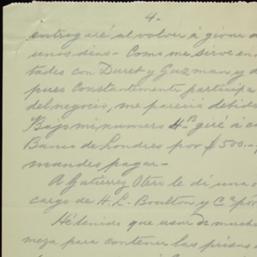 4.-
entregaré al volver á girar d
unos dias - Como me sirve en
tades con Duret y Guzman y d
pues Constantemente participa
del negocio, me pareció debido
Bajo mi numero 4 giré á c
Banco de Londres por $ 500.-
mandes pagar -
A Gutierrez Otero le di una o
cargo de H. L. Boulton y Cª por
He tenido que usar de mucha
para contener las